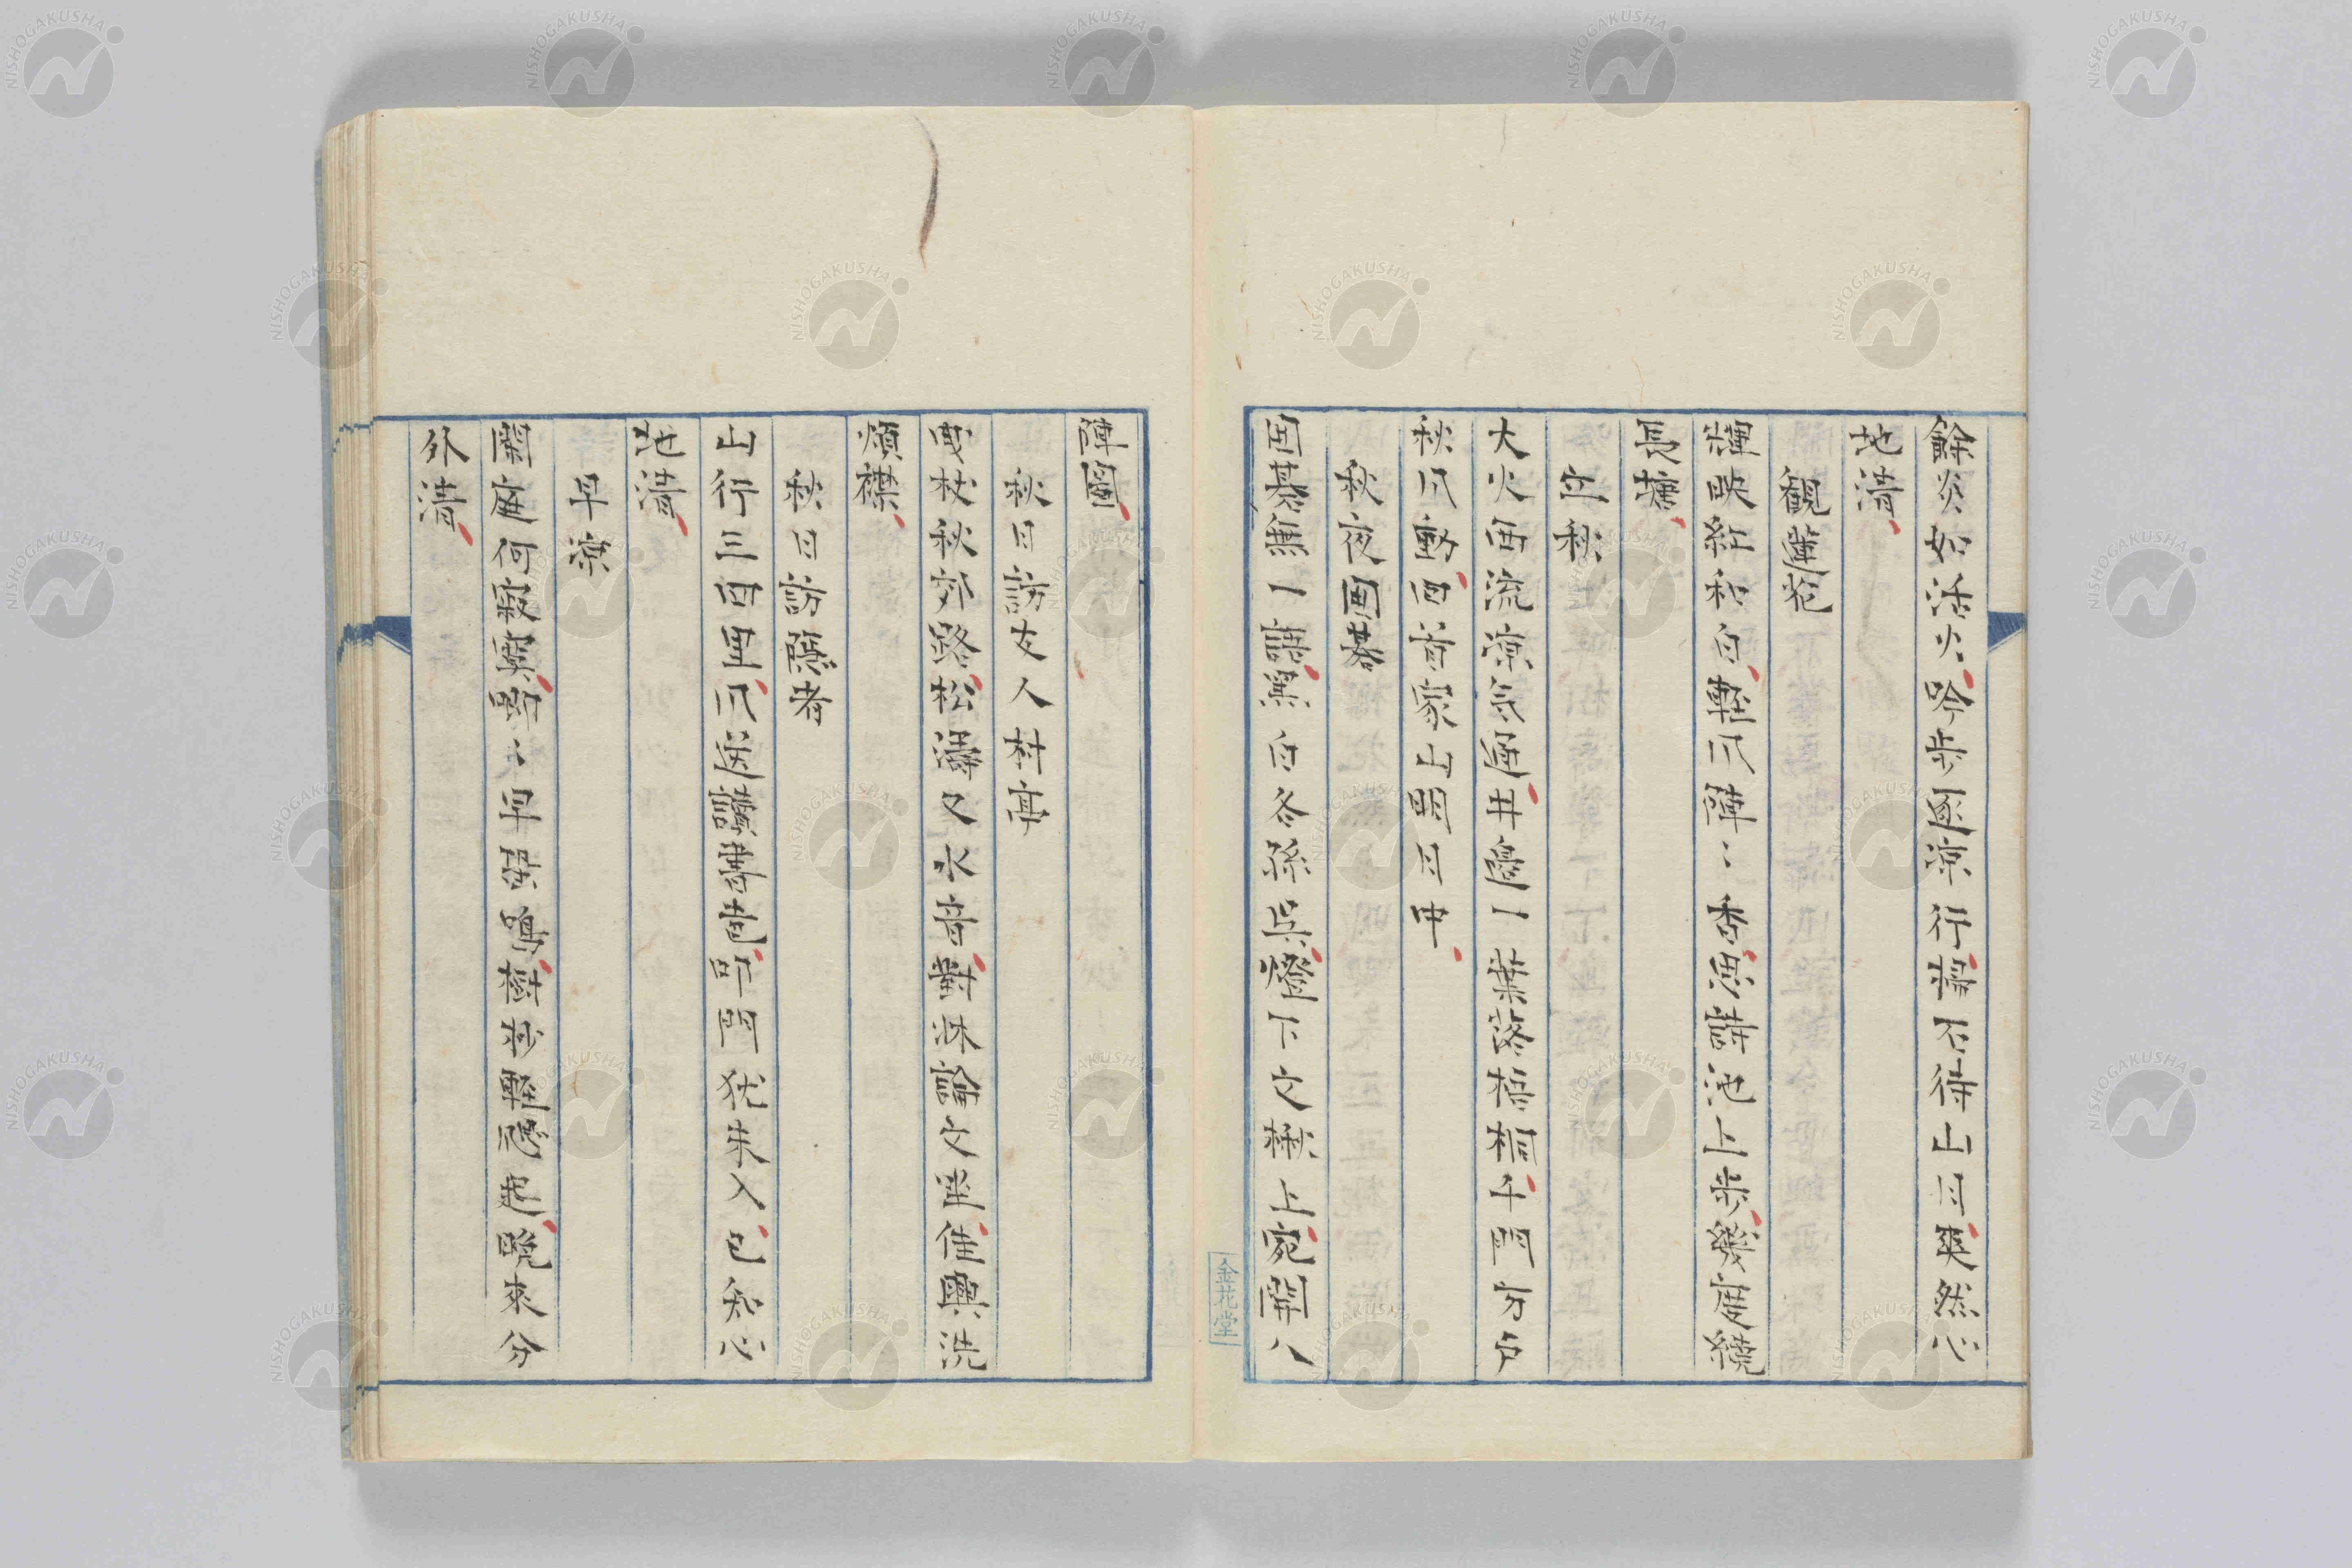 餘炎如活火吟歩逐涼行掃石待山月爽然心
地清
觀蓮花
糚映紅和白輕风陣〻香思詩池上歩幾度繞
長塘
立秋
大火西流涼氣通井邉一葉落梧桐千門万戶
秋风動回首家山明月中
秋夜囲碁
囲碁無一語黑白各孫呉燈下文楸上宛開八
金花堂
陣圖
秋日訪友人村
曳杖秋郊路松濤又水音對牀論文遥佳興洗
煩襟
秋日訪隱者
山行三四里风送讀書声竹門猶未入已知心
地清
早涼
閑庭何寂寞斷〻早蛩鳴樹杪輕颸起晩來分
外清
NISHOGAKUSHA